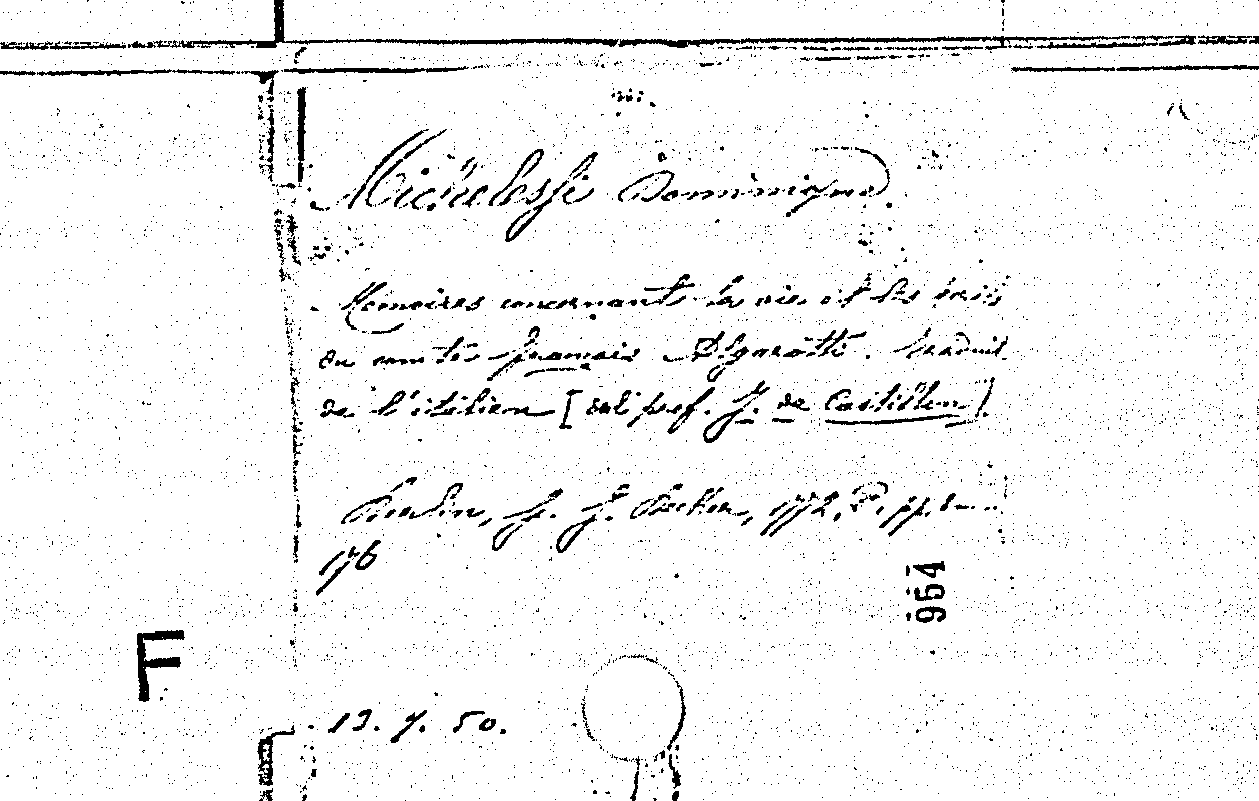 Michelessi Dominique.
Mémoires concernant la vie et les écrits
du comte François Algarotti. Traduit
de l'italien [dal prof. J. de Castillon].
Berlin, G. J. Decker, 1772, 8°, pp.
176
964
F
13. 7. 50.